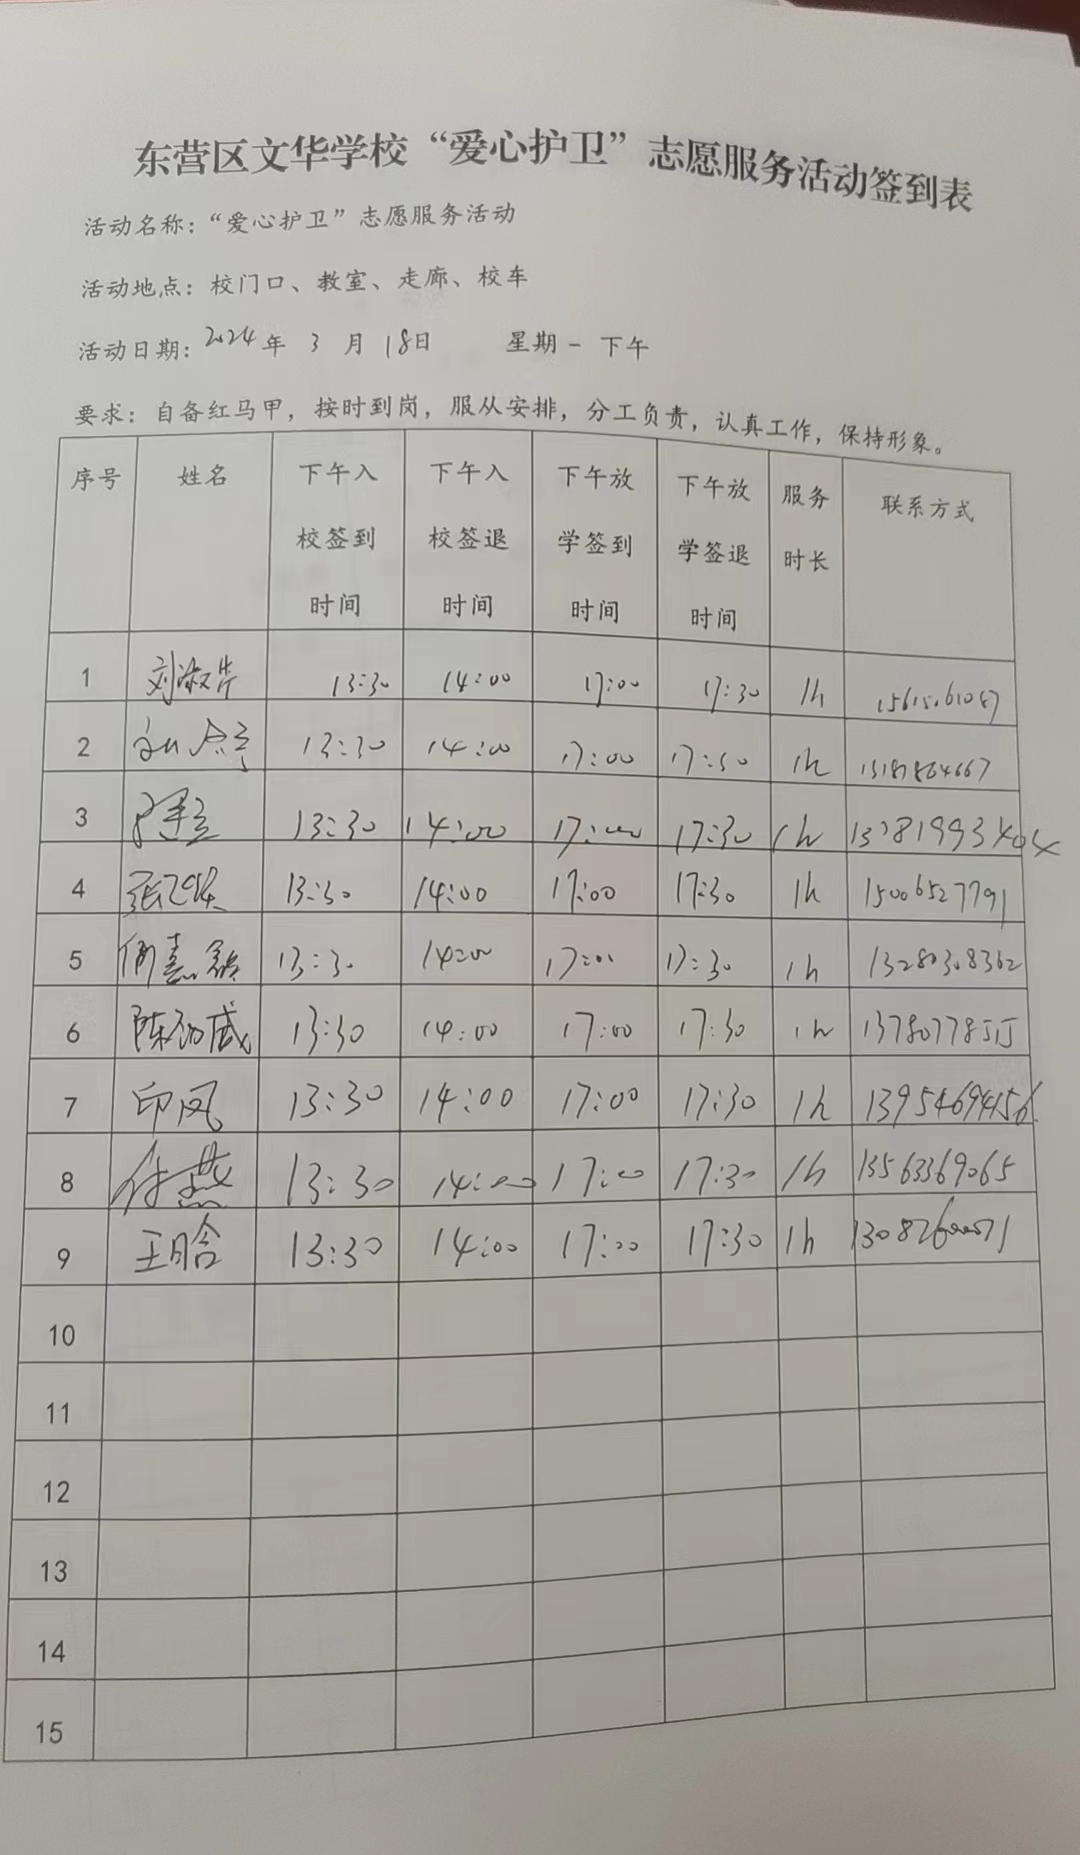 东营区文华学校“爱心护卫”志愿服务活动签到表
活动名称：“爱心护卫”志愿服务活动
活动地点：校门口、教室、走廊、校车
活动日期：2024年 3 月 18日 星期一 下午
要求：自备红马甲，按时到岗，服从安排，分工负责，认真工作，保持形象。
序号 姓名 下午入校签到时间 下午入校签退时间 下午放学签到时间 下午放学签退时间 服务时长 联系方式
1 刘淑芹 13:30 14:00 17:00 17:30 1h
2 13:30 14:00 17:00 17:30 1h
3 13:30 14:00 17:00 17:30 1h
4 13:30 14:00 17:00 17:30 1h 15006527791
5 13:30 14:00 17:00 17:30 1h 13280308362
6 13:30 14:00 17:00 17:30 1h
7 印凤 13:30 14:00 17:00 17:30 1h 13954694156
8 付燕 13:30 14:00 17:00 17:30 1h 13563369065
9 王晗 13:30 14:00 17:00 17:30 1h
10
11
12
13
14
15